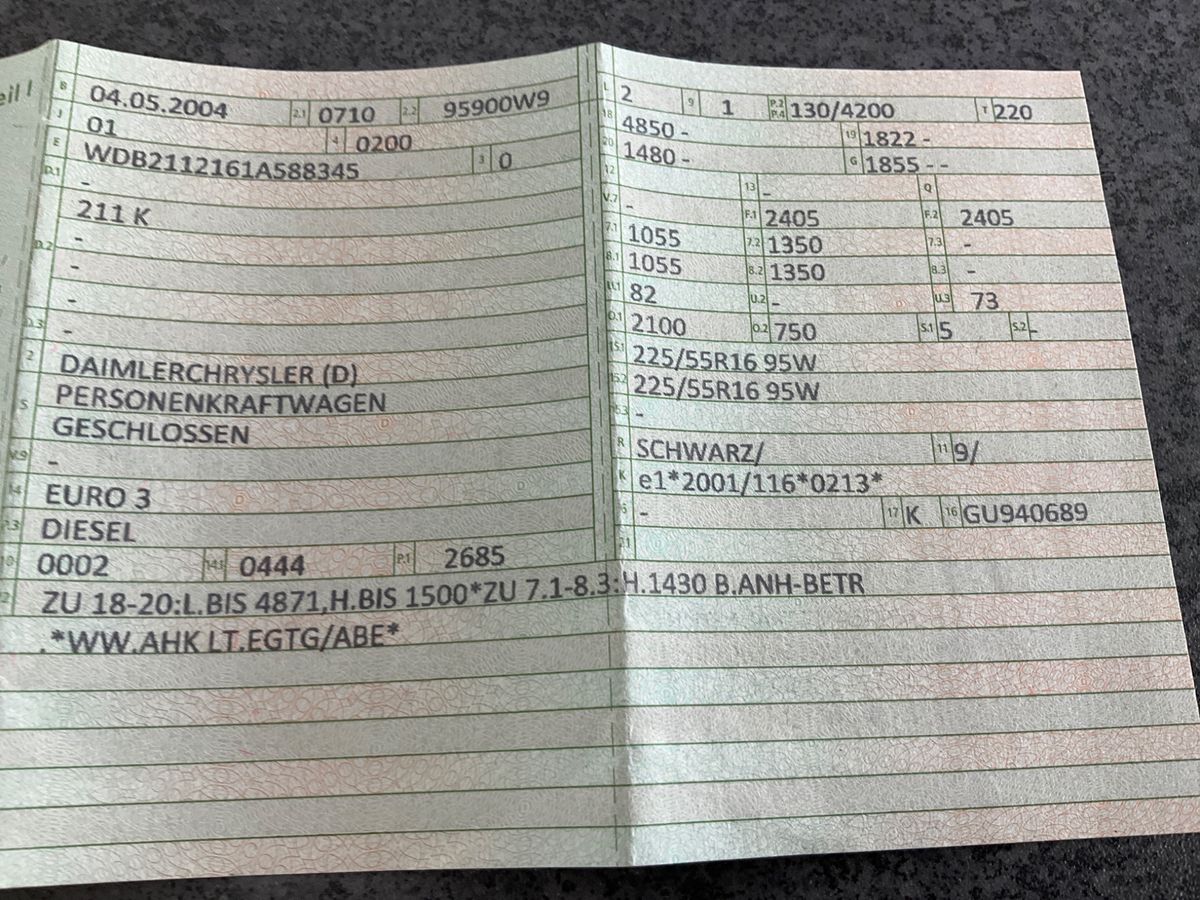 eil I
B 04.05.2004 2.1 0710 2.2 95900W9
J 01 4 0200
E WDB2112161A588345 3 0
D.1 -
211 K
D.2 -
-
-
D.3 -
2 DAIMLERCHRYSLER (D)
5 PERSONENKRAFTWAGEN
GESCHLOSSEN
V.9 -
14 EURO 3
P.3 DIESEL
10 0002 14.1 0444 P.1 2685
L 2 9 1 P.2 P.4 130/4200 T 220
18 4850 - 19 1822 -
20 1480 - G 1855 - -
12 13 - Q
V.7 - F.1 2405 F.2 2405
7.1 1055 7.2 1350 7.3 -
8.1 1055 8.2 1350 8.3 -
U.1 82 U.2 - U.3 73
O.1 2100 O.2 750 S.1 5 S.2 -
15.1 225/55R16 95W
15.2 225/55R16 95W
15.3 -
R SCHWARZ/ 11 9/
K e1*2001/116*0213*
6 - 17 K 16 GU940689
21
22 ZU 18-20:L.BIS 4871,H.BIS 1500*ZU 7.1-8.3:H.1430 B.ANH-BETR
.*WW.AHK LT.EGTG/ABE*